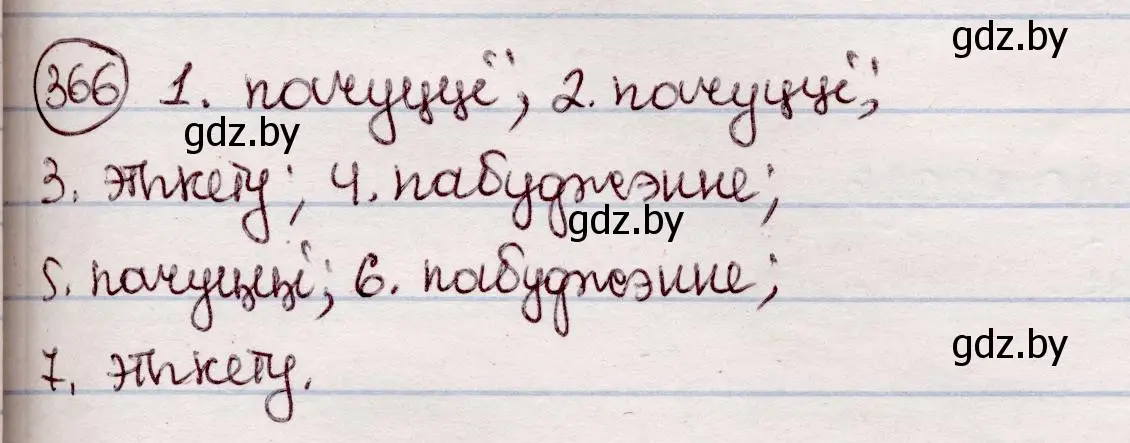 gdz.by
366 1. пачуцці; 2. пачуцці;
gdz.by
3. этыкету; 4. пабуджэнне;
gdz.by
5. пачуцці; 6. пабуджэнне;
gdz.by
7. этыкету.